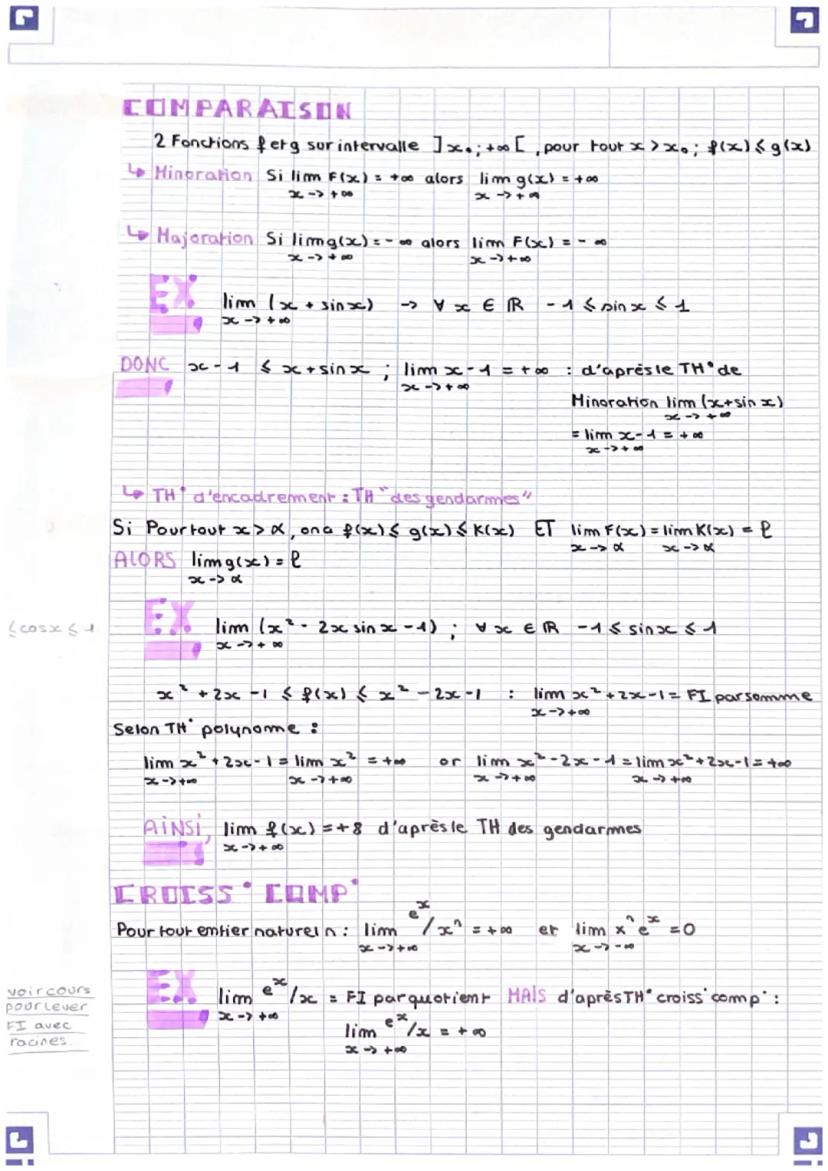 COMPARAISON
2 Fonctions f et g sur intervalle ]x₀; +∞ [, pour tout x > x₀; f(x) ≤ g(x)
↳ Minoration Si lim F(x) = +∞ alors lim g(x) = +∞
x -> +∞ x -> +∞
↳ Majoration Si lim g(x) = -∞ alors lim F(x) = -∞
x -> +∞ x -> +∞
EX lim (x + sin x) -> ∀ x ∈ ℝ -1 ≤ sin x ≤ 1
x -> +∞
DONC x - 1 ≤ x + sin x ; lim x - 1 = +∞ : d'après le TH° de
x -> +∞
Minoration lim (x+sin x)
x -> +∞
= lim x - 1 = +∞
x -> +∞
↳ TH° d'encadrement : TH "des gendarmes"
Si Pour tout x > α, on a f(x) ≤ g(x) ≤ K(x) ET lim F(x) = lim K(x) = ℓ
x -> α x -> α
ALORS lim g(x) = ℓ
x -> α
≤ cos x ≤ 1
EX lim (x² - 2x sin x - 1) ; ∀ x ∈ ℝ -1 ≤ sin x ≤ 1
x -> +∞
x² + 2x - 1 ≤ f(x) ≤ x² - 2x - 1 : lim x² + 2x - 1 = FI par somme
x -> +∞
Selon TH° polynome :
lim x² + 2x - 1 = lim x² = +∞ or lim x² - 2x - 1 = lim x² + 2x - 1 = +∞
x -> +∞ x -> +∞ x -> +∞ x -> +∞
AINSI, lim f(x) = +8 d'après le TH des gendarmes
x -> +∞
CROISS° COMP°
Pour tout entier naturel n : lim eˣ/xⁿ = +∞ et lim xⁿ eˣ = 0
x -> +∞ x -> -∞
voir cours
pour lever
FI avec
racines.
EX lim eˣ/x = FI par quotient MAIS d'après TH° croiss° comp° :
x -> +∞
lim eˣ/x = +∞
x -> +∞